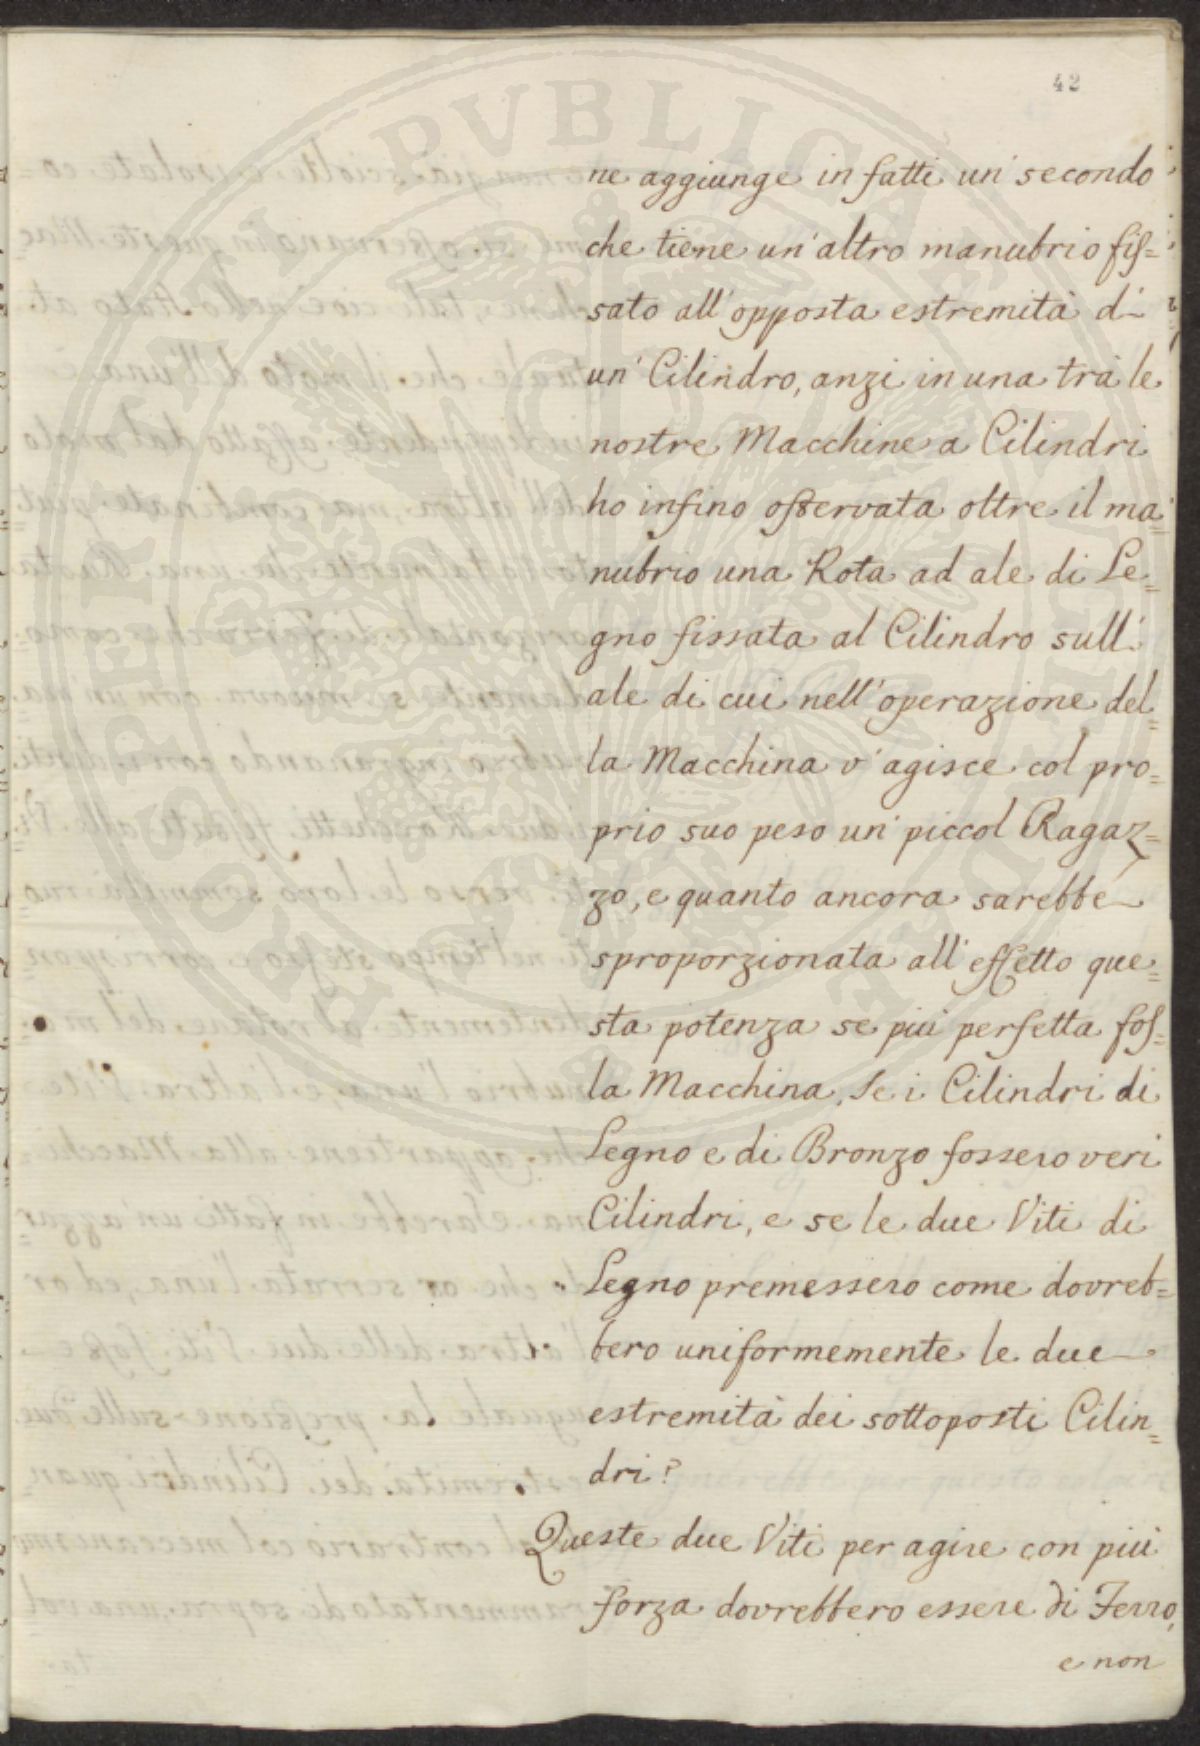 42
ne aggiunge in fatti un' secondo
che tiene un'altro manubrio fis=
sato all'opposta estremità d'
un' Cilindro, anzi in una trà le
nostre Macchine a Cilindri
ho infino osservata oltre il ma=
nubrio una Rota ad ale di Le=
gno fissata al Cilindro sull'
ale di cui nell'operazione del=
la Macchina v'agisce col pro=
prio suo peso un' piccol Ragaz=
zo, e quanto ancora sarebbe
sproporzionata all'effetto que=
sta potenza se più perfetta fos=
la Macchina, se i Cilindri di
Legno e di Bronzo fossero veri
Cilindri, e se le due Viti di
Legno premessero come dovreb=
bero uniformemente le due
estremità dei sottoposti Cilin=
dri?
Queste due Viti per agire con più
forza dovrebbero essere di Ferro,
e non